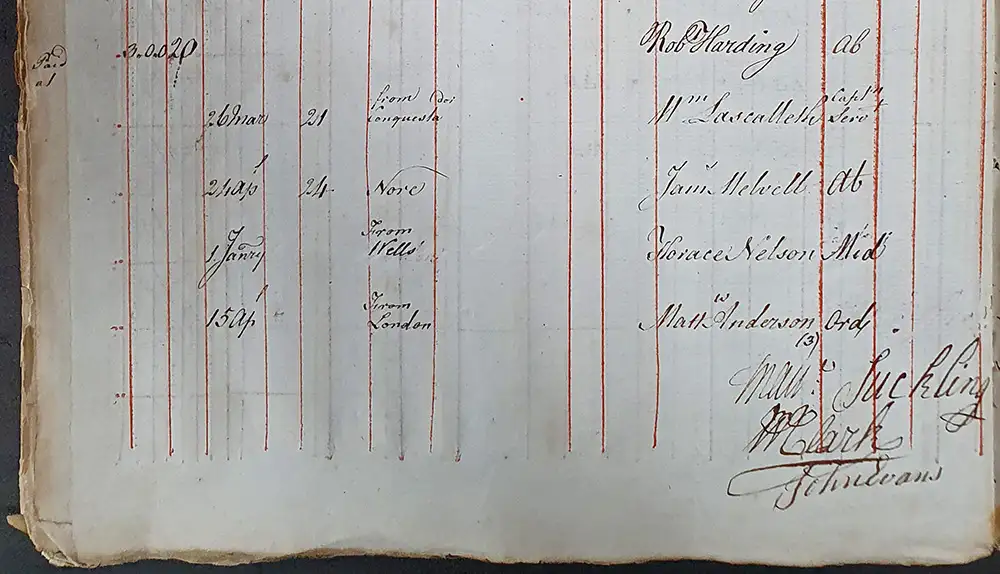 3.0.0 20 Rob Harding ab
Paid
at
26 Mar 21 from Wm Lascalleth Capts
Conquesta Serv
24 Ap 24 Nore Jams Melvell Ab
1 Janry From Horace Nelson Mid
Wells
15 Ap From Mattw Anderson Ord
London
(3)
Matt. Suckling
M Clark
John Evans